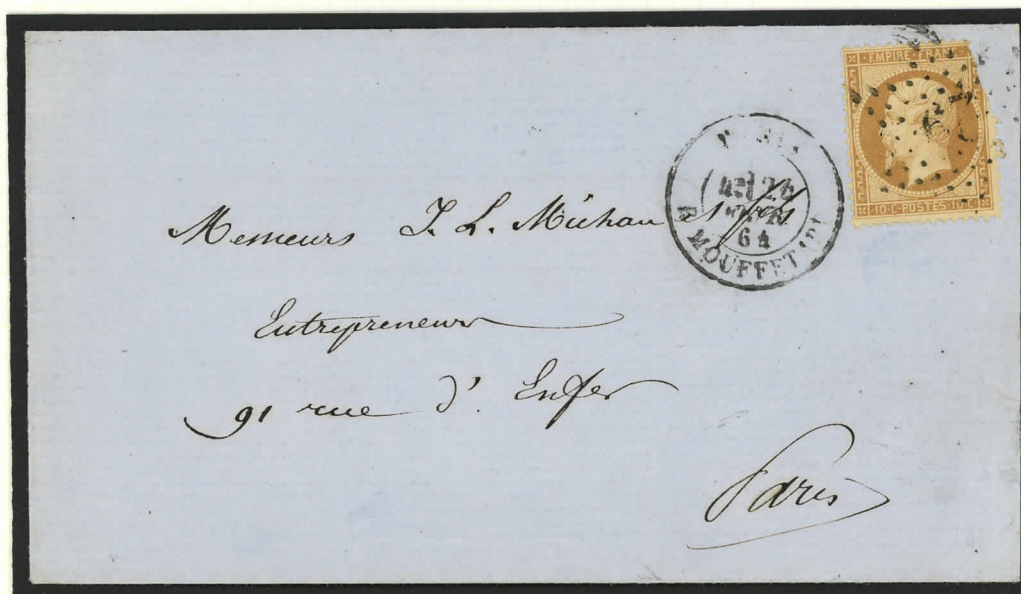 EMPIRE FRANC
10 C POSTES 10 C
PARIS
24
64
R. MOUFFETARD
Messieurs J. L. Michau
Entrepreneurs
91 rue d'Enfer
Paris